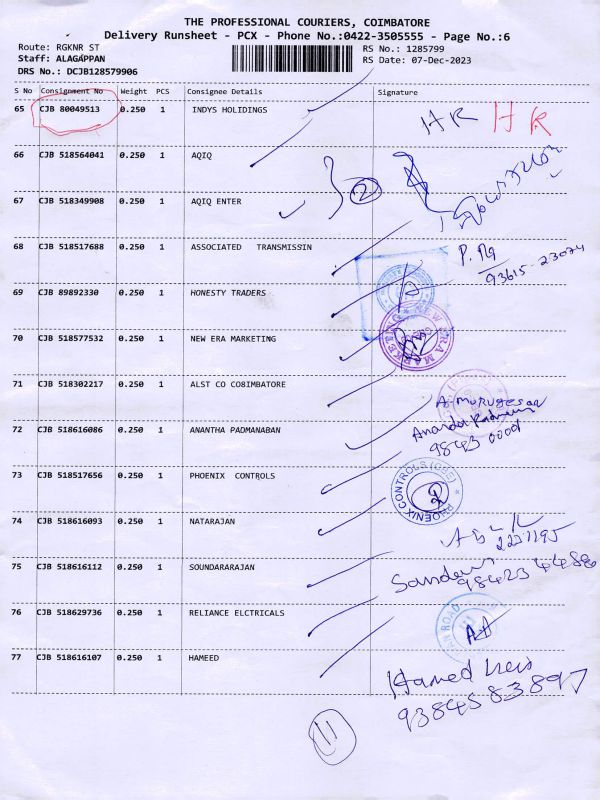 THE PROFESSIONAL COURIERS, COIMBATORE
Delivery Runsheet - PCX - Phone No.:0422-3505555 - Page No.:6
Route: RGKNR ST
RS No.: 1285799
Staff: ALAGAPPAN
RS Date: 07-Dec-2023
DRS No.: DCJB128579906
S No Consignment No Weight PCS Consignee Details Signature
65 CJB 80049513 0.250 1 INDYS HOLIDINGS HR HR
66 CJB 518564041 0.250 1 AQIQ
2
67 CJB 518349908 0.250 1 AQIQ ENTER
68 CJB 518517688 0.250 1 ASSOCIATED TRANSMISSIN
93615-23074
69 CJB 89892330 0.250 1 HONESTY TRADERS
70 CJB 518577532 0.250 1 NEW ERA MARKETING NEW ERA MARKETING
71 CJB 518302217 0.250 1 ALST CO CO8IMBATORE
A. MURUGESAN
72 CJB 518616086 0.250 1 ANANTHA PADMANABAN
98430009
73 CJB 518517656 0.250 1 PHOENIX CONTROLS PHOENIX CONTROLS (CBE)
74 CJB 518616093 0.250 1 NATARAJAN
2221195
75 CJB 518616112 0.250 1 SOUNDARARAJAN
98423 44886
76 CJB 518629736 0.250 1 RELIANCE ELCTRICALS ROAD
77 CJB 518616107 0.250 1 HAMEED Hamed
9384583897
11